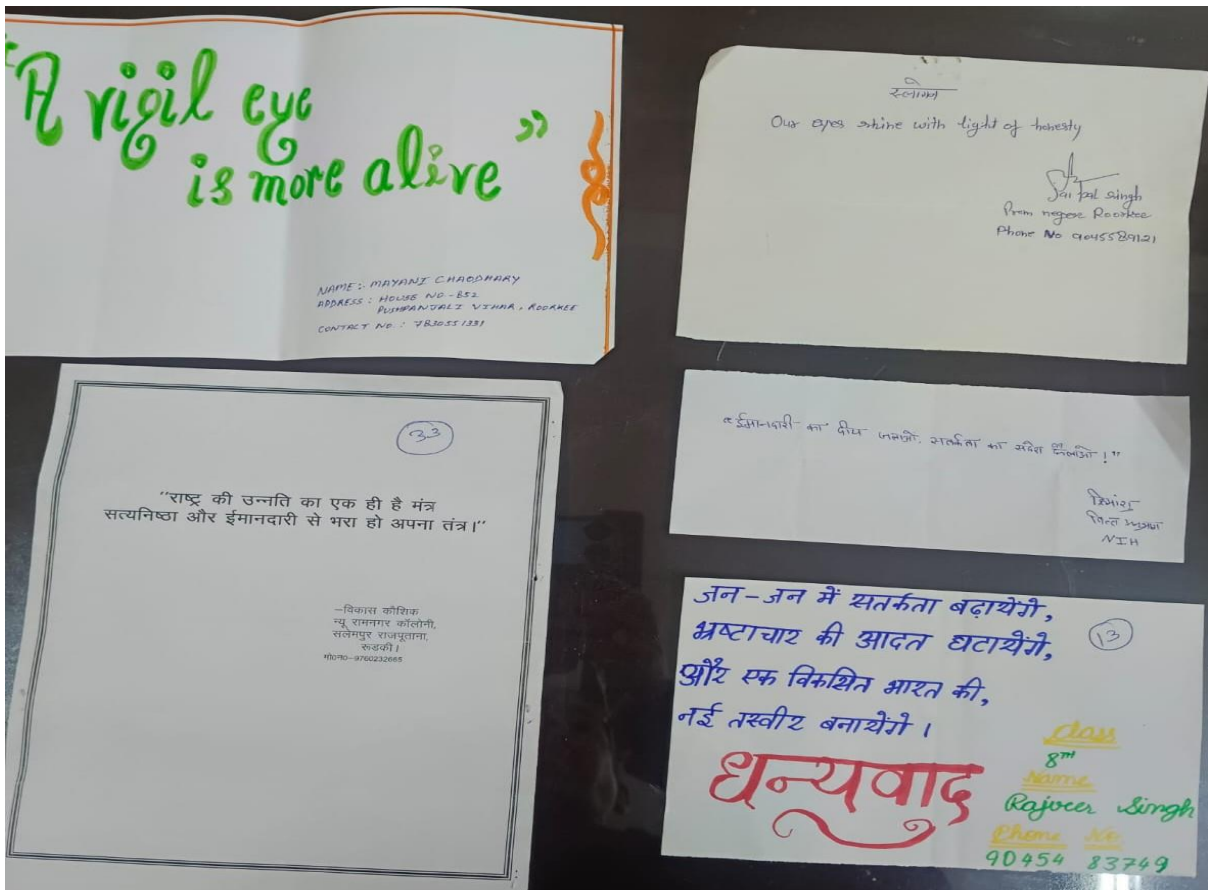 "A vigil eye
is more alive"
NAME :- MAYANI CHAODHARY
ADDRESS : HOUSE NO - B52
PUSHPANJALI VIHAR, ROORKEE
CONTACT NO. : 7830551331
स्लोगन
Our eyes shine with light of honesty
Jai Pal Singh
Prem neger Roorkee
Phone No 9045589121
33
"राष्ट्र की उन्नति का एक ही है मंत्र
सत्यनिष्ठा और ईमानदारी से भरा हो अपना तंत्र।"
–विकास कौशिक
न्यू रामनगर कॉलोनी,
सलेमपुर राजपूताना,
रूडकी।
मो०न०–9760232665
"ईमानदारी का दीप जलाओ, सतर्कता का संदेश फैलाओ!"
हिमांशु
वित्त अनुभाग
NIH
जन-जन में सतर्कता बढ़ायेंगे,
भ्रष्टाचार की आदत घटायेंगे,
13
और एक विकसित भारत की,
नई तस्वीर बनायेंगे।
धन्यवाद
Class
8th
Name
Rajveer Singh
Phone No.
90454 83749